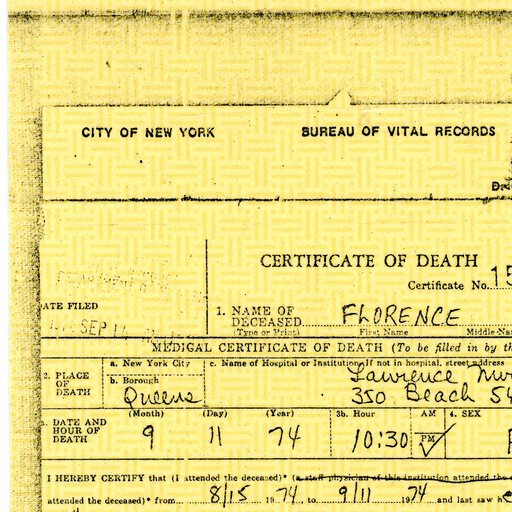 CITY OF NEW YORK BUREAU OF VITAL RECORDS
CERTIFICATE OF DEATH
Certificate No. 15
ATE FILED
SEP 11
1. NAME OF
DECEASED FLORENCE
(Type or Print) First Name Middle Na
MEDICAL CERTIFICATE OF DEATH (To be filled in by th
2. PLACE OF DEATH
a. New York City
b. Borough
Queens
c. Name of Hospital or Institution. If not in hospital, street address
Lawrence Nur
350 Beach 54
3. DATE AND HOUR OF DEATH
(Month) (Day) (Year) 3b. Hour AM 4. SEX
9 11 74 10:30 PM
I HEREBY CERTIFY that (I attended the deceased)* (a staff physician of this institution attended the
attended the deceased)* from 8/15 1974 to 9/11 1974 and last saw h